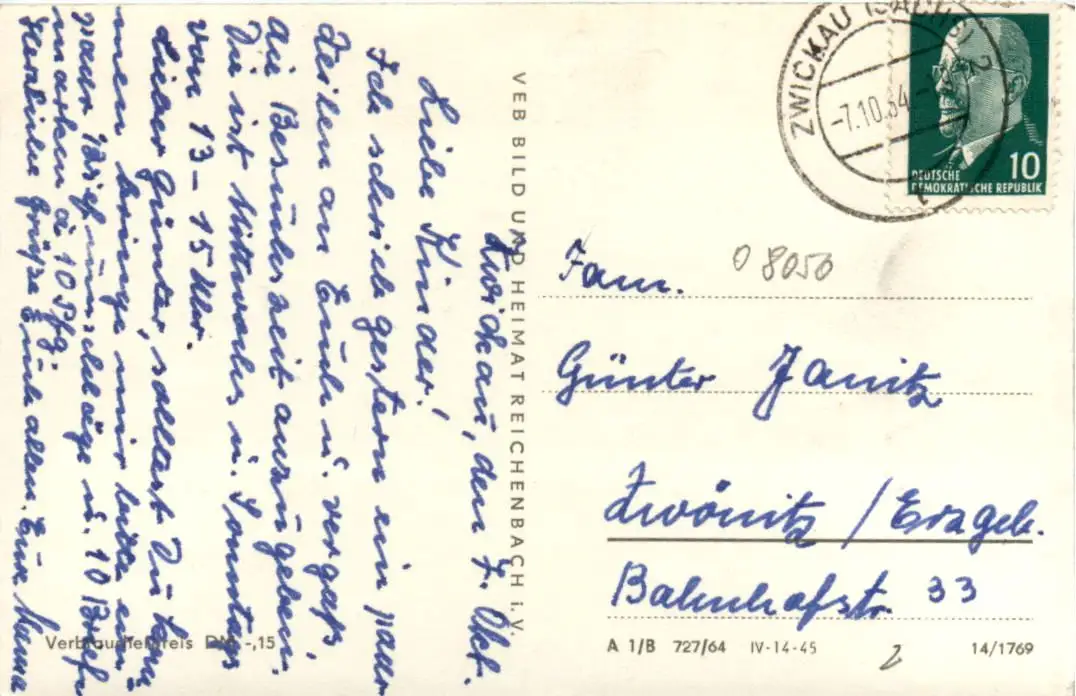 Zwickau, den 7. Okt.
Liebe Kinder!
Ich schrieb gestern ein paar
Zeilen an Euch u. vergaß,
die Besuchszeit anzugeben.
Die ist Mittwochs u. Sonntags
von 13-15 Uhr.
Lieber Günter, solltest Du kom
men bringe mir bitte ein
paar Briefumschläge u. 10 Brief
marken à 10 Pfg.
Herzliche Grüße Euch allen. Eure Mama
Verbraucherpreis DM -,15
VEB BILD UND HEIMAT REICHENBACH i. V.
ZWICKAU (SACHS) 2
-7.10.64.-
10
DEUTSCHE
DEMOKRATISCHE REPUBLIK
O 8050
Fam.
Günter Janitz
Zwönitz / Erzgeb.
Bahnhofstr. 33
A 1/B 727/64 IV-14-45 14/1769
2